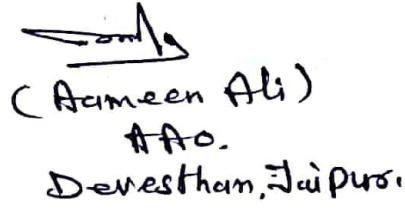 (Aameen Ali)
AAO.
Devesthan, Jaipur.